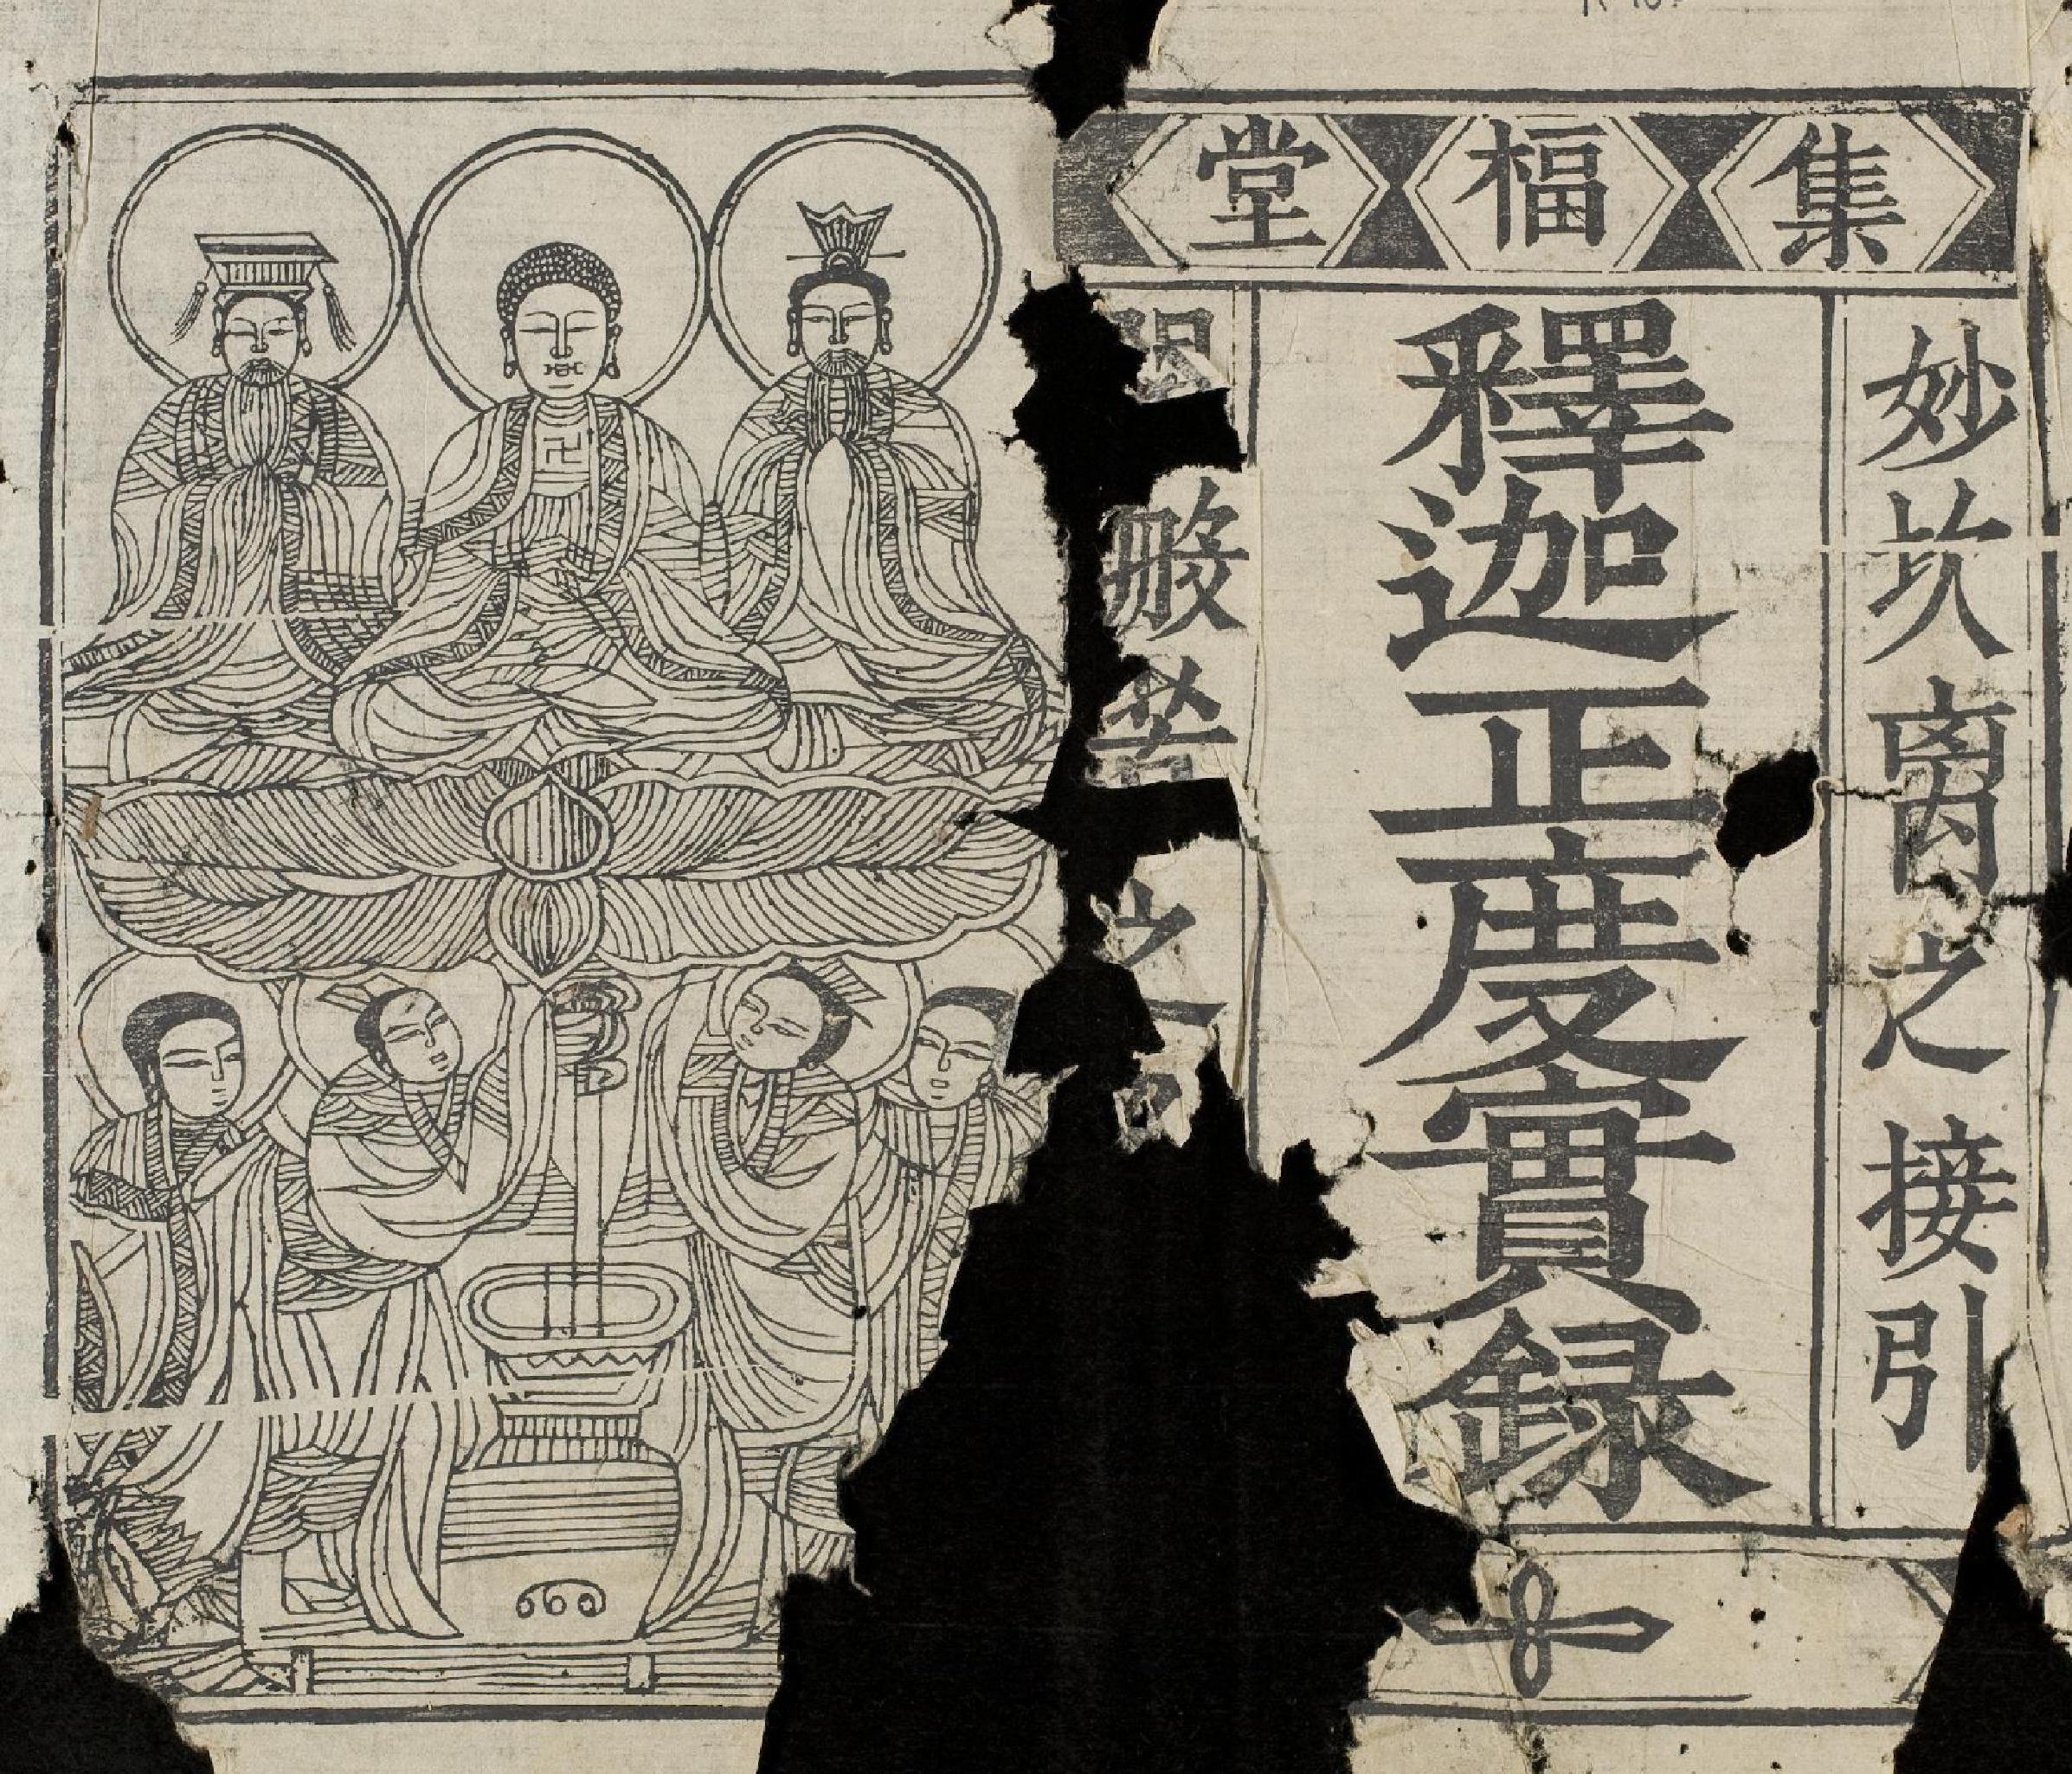 集福堂
妙坎离之接引
釋迦正度實錄
般若之